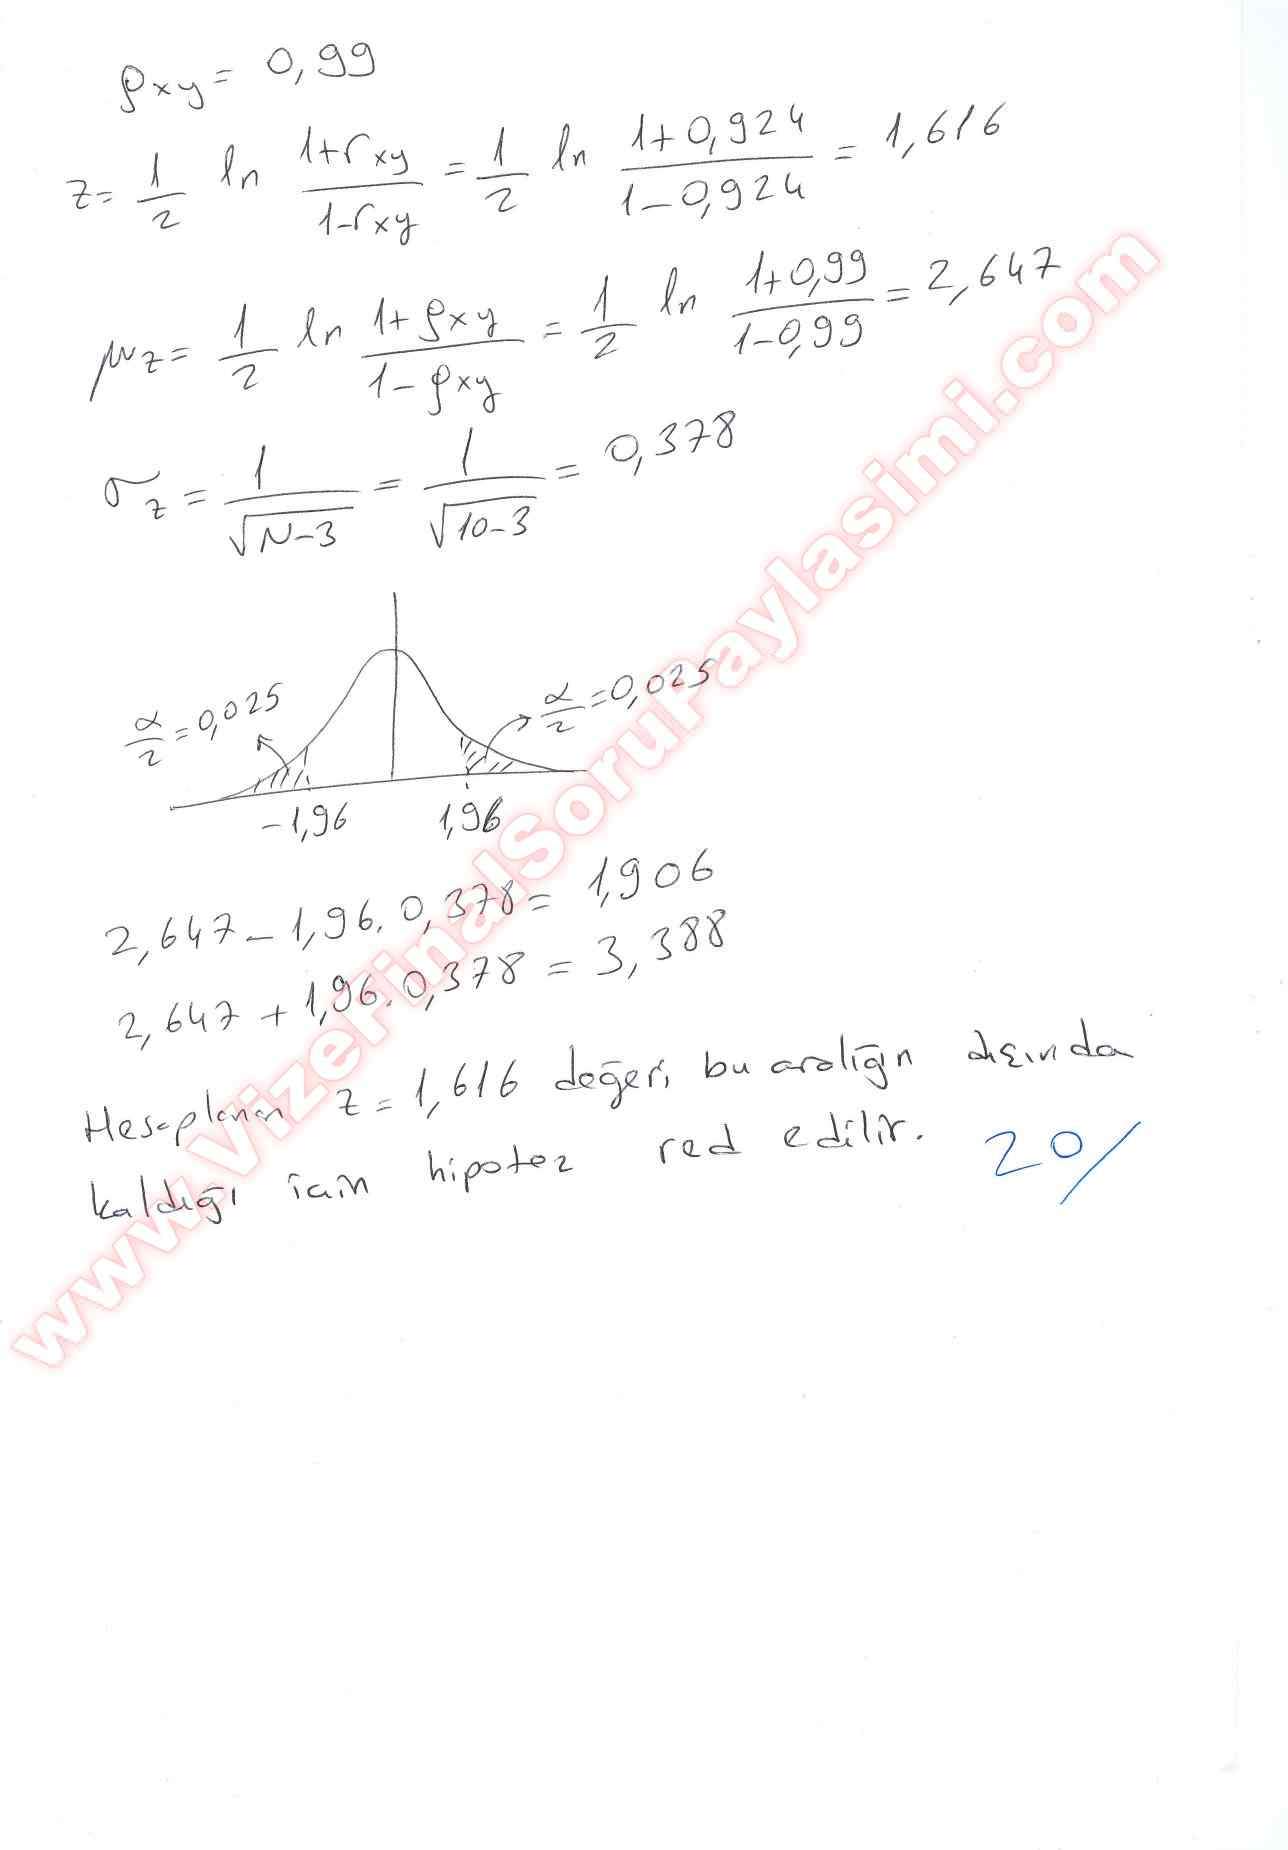 ρxy = 0,99
z = 1/2 ln (1+rxy)/(1-rxy) = 1/2 ln (1+0,924)/(1-0,924) = 1,616
μz = 1/2 ln (1+ρxy)/(1-ρxy) = 1/2 ln (1+0,99)/(1-0,99) = 2,647
σz = 1/√(N-3) = 1/√(10-3) = 0,378
α/2 = 0,025
α/2 = 0,025
-1,96
1,96
2,647 - 1,96. 0,378 = 1,906
2,647 + 1,96. 0,378 = 3,388
Hesaplanan z = 1,616 değeri bu aralığın dışında
kaldığı için hipotez red edilir.
20/
www.VizeFinalSoruPaylasimi.com